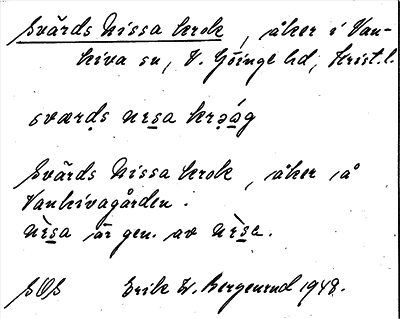 Svärds Nissa krok, åker i Van-
kiva sn, V. Göinge hd, Krist. l.
sværḍs nɪsa krə̣́g
Svärds Nissa krok, åker å
Vankivagården.
nɪ̀sa är gen. av nɪ̀se.
SOS Erik W. Bergenrud 1948.